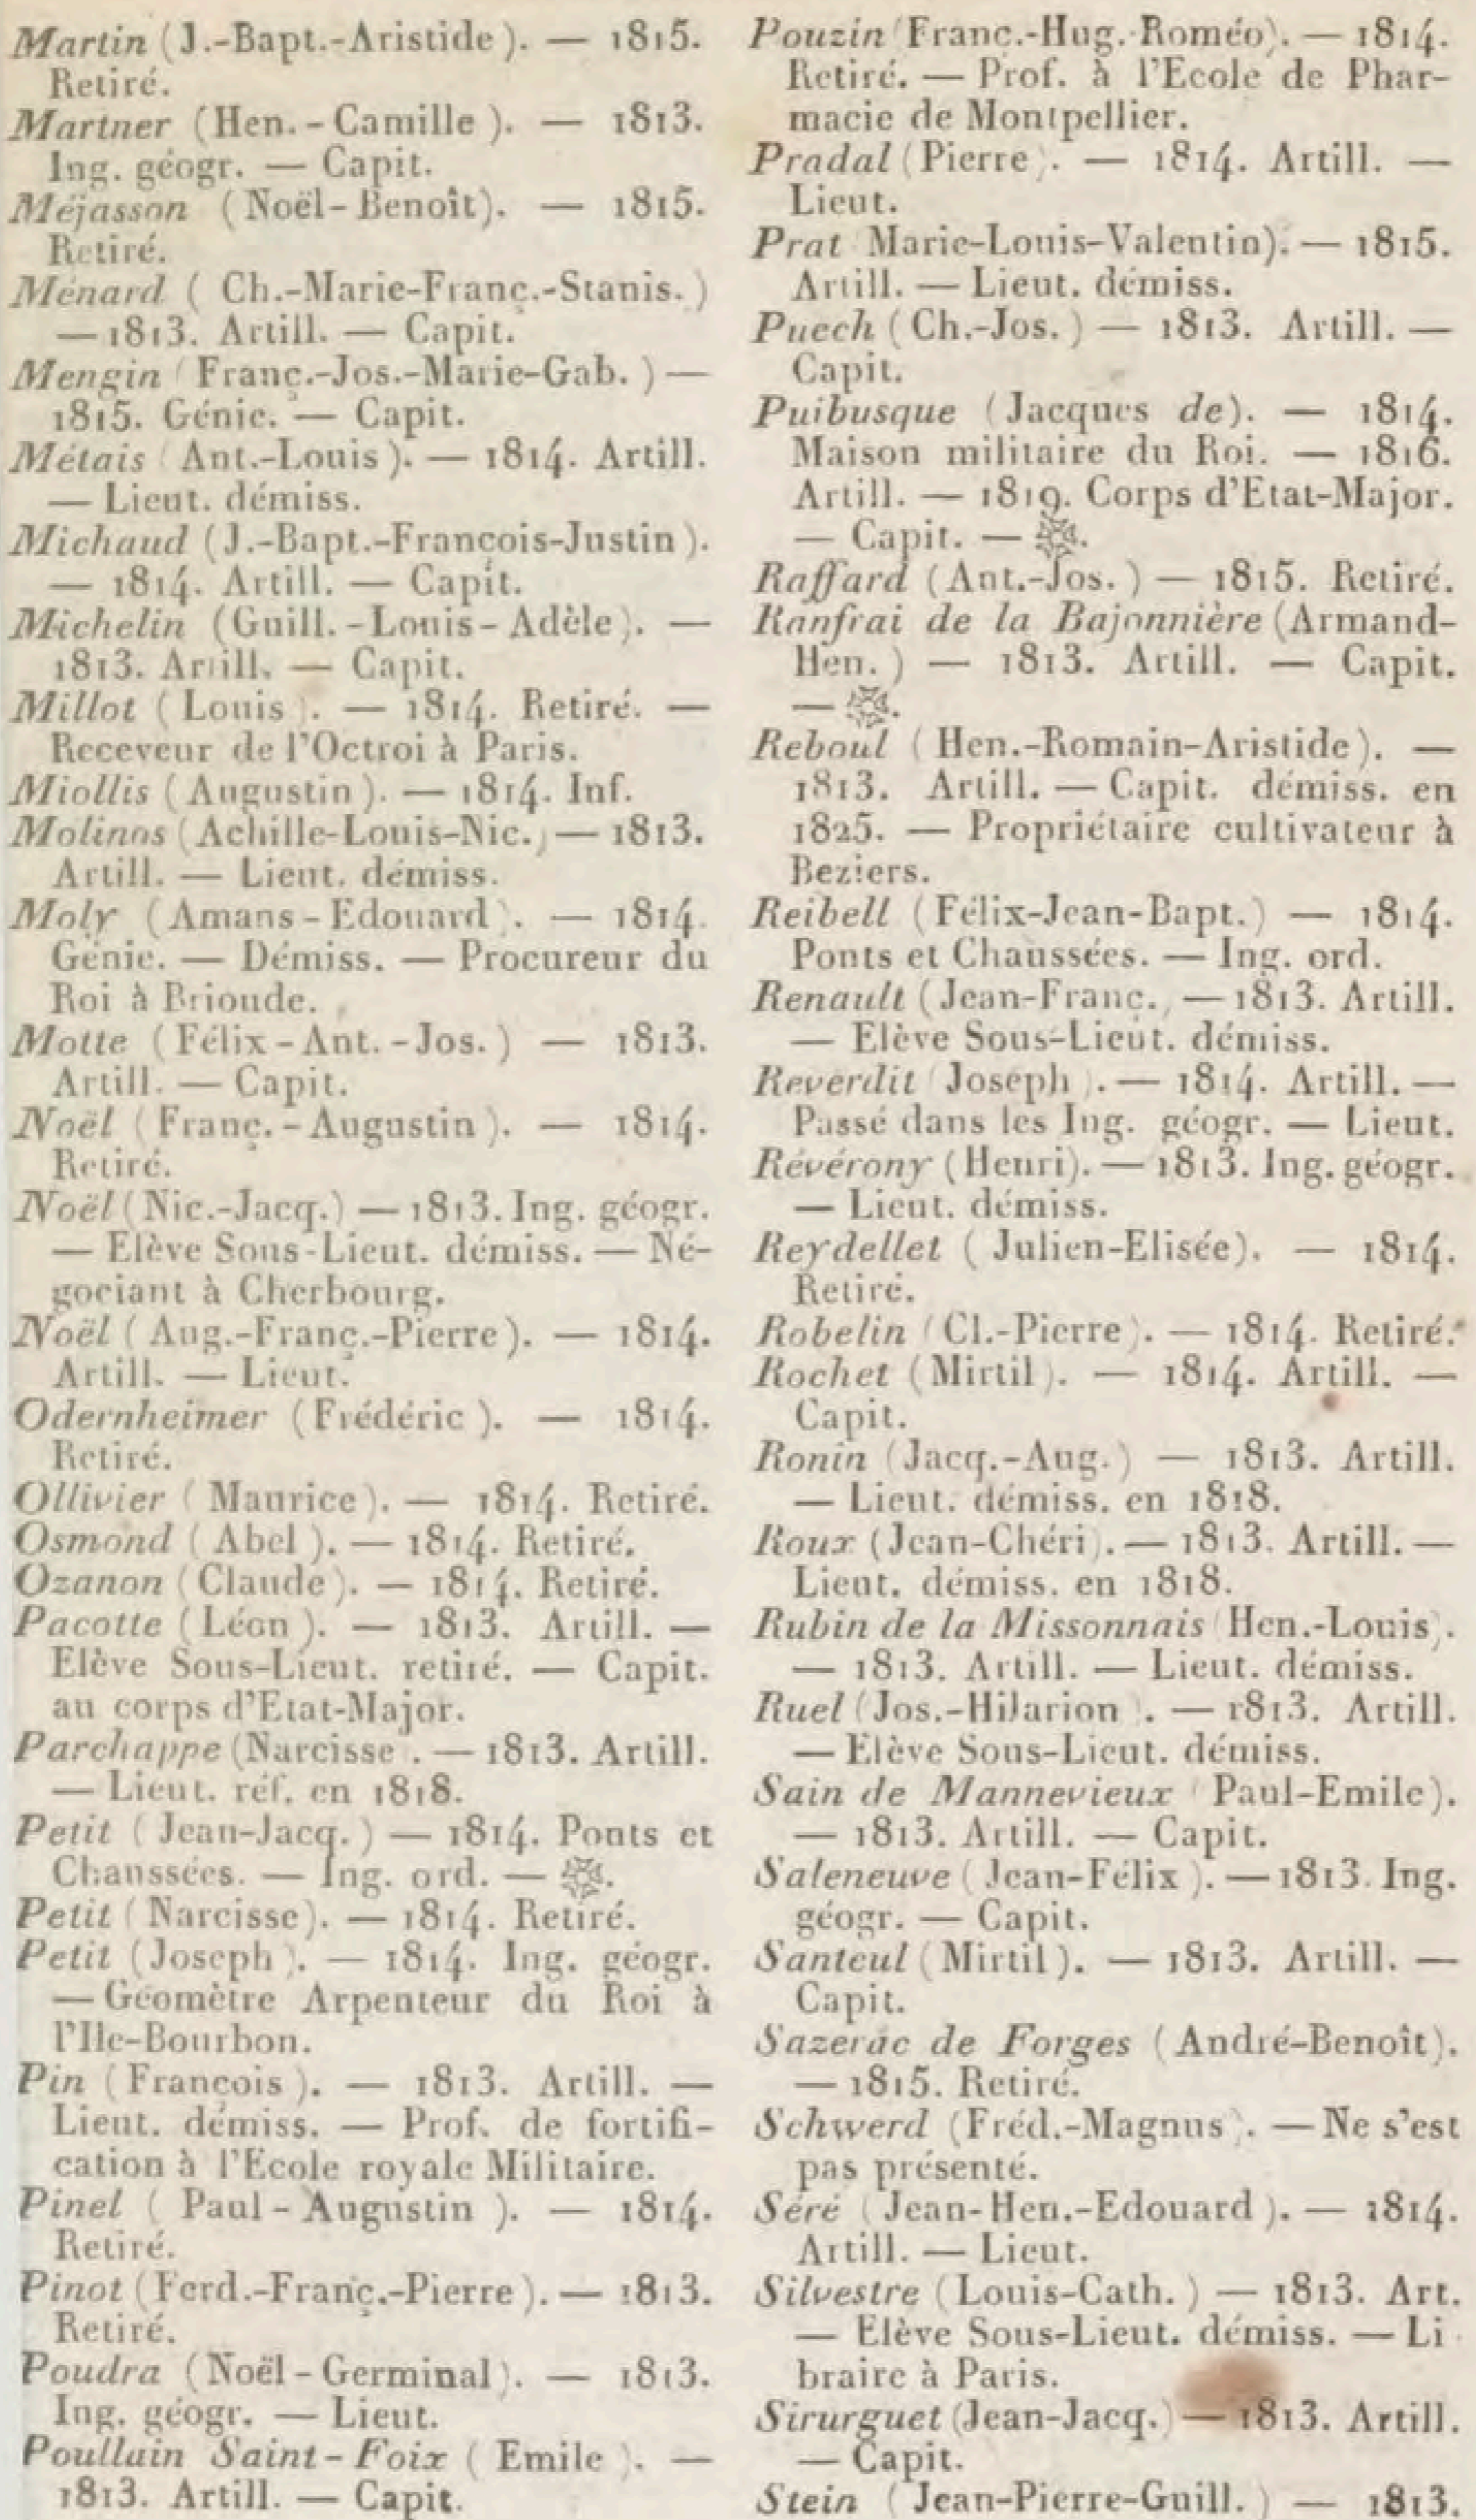 Martin (J.-Bapt.-Aristide). — 1815.
Retiré.
Martner (Hen.-Camille). — 1813.
Ing. géogr. — Capit.
Méjasson (Noël-Benoît). — 1815.
Retiré.
Ménard (Ch.-Marie-Franç.-Stanis.)
— 1813. Artill. — Capit.
Mengin (Franç.-Jos.-Marie-Gab.) —
1815. Génie. — Capit.
Métais (Ant.-Louis). — 1814. Artill.
— Lieut. démiss.
Michaud (J.-Bapt.-François-Justin).
— 1814. Artill. — Capit.
Michelin (Guill.-Louis-Adèle). —
1813. Artill. — Capit.
Millot (Louis). — 1814. Retiré. —
Receveur de l'Octroi à Paris.
Miollis (Augustin). — 1814. Inf.
Molinos (Achille-Louis-Nic.) — 1813.
Artill. — Lieut. démiss.
Moly (Amans-Edouard). — 1814.
Génie. — Démiss. — Procureur du
Roi à Brioude.
Motte (Félix-Ant.-Jos.) — 1813.
Artill. — Capit.
Noël (Franç.-Augustin). — 1814.
Retiré.
Noël (Nic.-Jacq.) — 1813. Ing. géogr.
— Elève Sous-Lieut. démiss. — Né-
gociant à Cherbourg.
Noël (Aug.-Franç.-Pierre). — 1814.
Artill. — Lieut.
Odernheimer (Frédéric). — 1814.
Retiré.
Ollivier (Maurice). — 1814. Retiré.
Osmond (Abel). — 1814. Retiré.
Ozanon (Claude). — 1814. Retiré.
Pacotte (Léon). — 1813. Artill. —
Elève Sous-Lieut. retiré. — Capit.
au corps d'Etat-Major.
Parchappe (Narcisse). — 1813. Artill.
— Lieut. réf. en 1818.
Petit (Jean-Jacq.) — 1814. Ponts et
Chaussées. — Ing. ord. — ✠.
Petit (Narcisse). — 1814. Retiré.
Petit (Joseph). — 1814. Ing. géogr.
— Géomètre Arpenteur du Roi à
l'Ile-Bourbon.
Pin (François). — 1813. Artill. —
Lieut. démiss. — Prof. de fortifi-
cation à l'Ecole royale Militaire.
Pinel (Paul-Augustin). — 1814.
Retiré.
Pinot (Ferd.-Franç.-Pierre). — 1813.
Retiré.
Poudra (Noël-Germinal). — 1813.
Ing. géogr. — Lieut.
Poullain Saint-Foix (Emile). —
1813. Artill. — Capit.
Pouzin (Franc.-Hug.-Roméo). — 1814.
Retiré. — Prof. à l'Ecole de Phar-
macie de Montpellier.
Pradal (Pierre). — 1814. Artill. —
Lieut.
Prat Marie-Louis-Valentin). — 1815.
Artill. — Lieut. démiss.
Puech (Ch.-Jos.) — 1813. Artill. —
Capit.
Puibusque (Jacques de). — 1814.
Maison militaire du Roi. — 1816.
Artill. — 1819. Corps d'Etat-Major.
— Capit. — ✠.
Raffard (Ant.-Jos.) — 1815. Retiré.
Ranfrai de la Bajonnière (Armand-
Hen.) — 1813. Artill. — Capit.
— ✠.
Reboul (Hen.-Romain-Aristide). —
1813. Artill. — Capit. démiss. en
1825. — Propriétaire cultivateur à
Beziers.
Reibell (Félix-Jean-Bapt.) — 1814.
Ponts et Chaussées. — Ing. ord.
Renault (Jean-Franç.) — 1813. Artill.
— Elève Sous-Lieut. démiss.
Reverdit (Joseph). — 1814. Artill. —
Passé dans les Ing. géogr. — Lieut.
Révérony (Henri). — 1813. Ing. géogr.
— Lieut. démiss.
Reydellet (Julien-Elisée). — 1814.
Retiré.
Robelin (Cl.-Pierre). — 1814. Retiré.
Rochet (Mirtil). — 1814. Artill. —
Capit.
Ronin (Jacq.-Aug.) — 1813. Artill.
— Lieut. démiss. en 1818.
Roux (Jean-Chéri). — 1813. Artill. —
Lieut. démiss. en 1818.
Rubin de la Missonnais (Hen.-Louis).
— 1813. Artill. — Lieut. démiss.
Ruel (Jos.-Hilarion). — 1813. Artill.
— Elève Sous-Lieut. démiss.
Sain de Mannevieux (Paul-Emile).
— 1813. Artill. — Capit.
Saleneuve (Jean-Félix). — 1813. Ing.
géogr. — Capit.
Santeul (Mirtil). — 1813. Artill. —
Capit.
Sazerac de Forges (André-Benoît).
— 1815. Retiré.
Schwerd (Fréd.-Magnus). — Ne s'est
pas présenté.
Séré (Jean-Hen.-Edouard). — 1814.
Artill. — Lieut.
Silvestre (Louis-Cath.) — 1813. Art.
— Elève Sous-Lieut. démiss. — Li-
braire à Paris.
Sirurguet (Jean-Jacq.) — 1813. Artill.
— Capit.
Stein (Jean-Pierre-Guill.) — 1813.